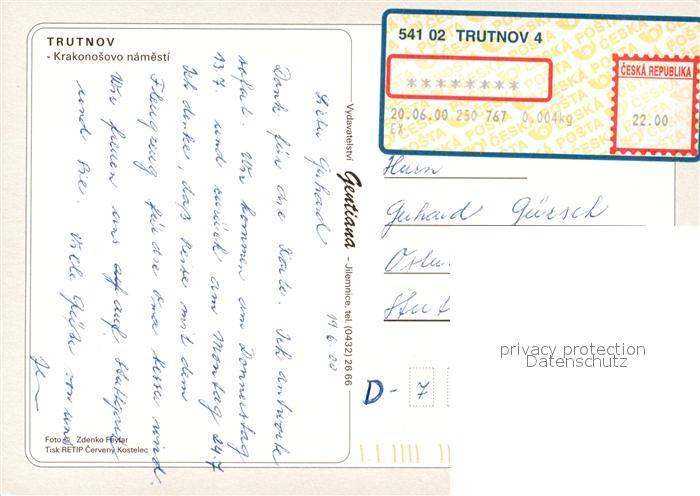 TRUTNOV
- Krakonošovo náměstí
19.6.00
Gerhard
Dank für die Karte. Ich antworte
sofort. Wir kommen am Donnerstag
13.7. und zurück am Montag 24.7
Ich denke, daß Reise mit dem
Flugzeug für die Oma besser wird.
Wir freuen uns auf Stuttgart
und Sie. Viele Grüße von uns
Foto Zdenko Feyfar
Tisk RETIP Červený Kostelec
Vydavatelství Gentiana – Jilemnice, tel. (0432) 26 66
541 02 TRUTNOV 4
ČESKÁ REPUBLIKA
********
20.06.00 250 767 0,004kg
EX
22.00
ČESKÁ POŠTA
Herrn
Gerhard
D - 7
privacy protection
Datenschutz